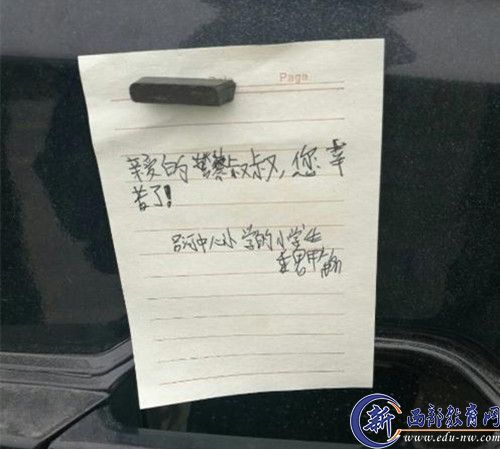 Page
亲爱的警察叔叔,您辛
苦了!
吕河中心小学的小学生
新 西部教育网
www.edu-nw.com